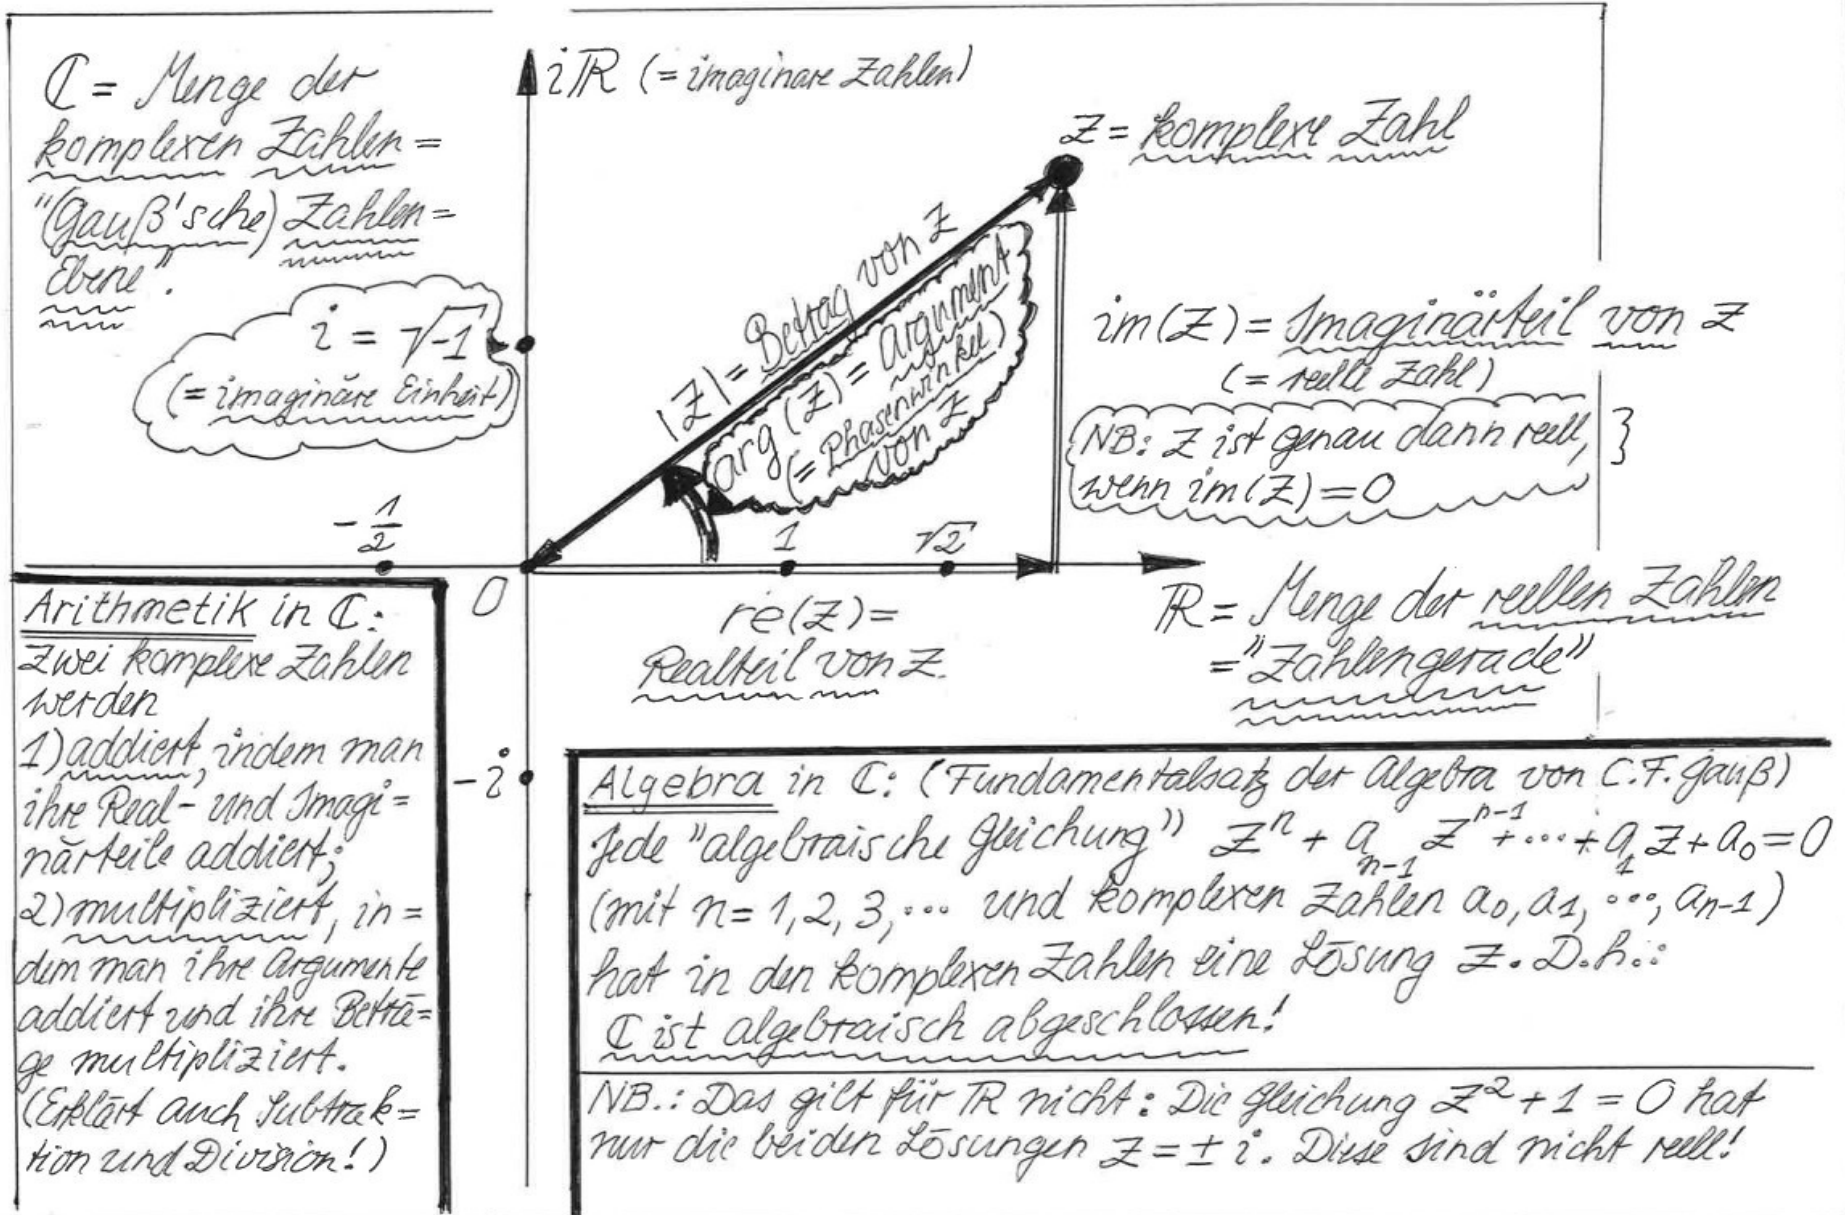 ℂ = Menge der
komplexen Zahlen =
"(Gauß'sche) Zahlen=
Ebene".
iℝ (= imaginäre Zahlen)
z = komplexe Zahl
i = √-1
(= imaginäre Einheit)
|z| = Betrag von z
arg(z) = Argument
(= Phasenwinkel)
von z
im(z) = Imaginärteil von z
(= reelle Zahl)
NB: z ist genau dann reell, }
wenn im(z) = 0
-1/2
0
1
√2
re(z) =
Realteil von z.
ℝ = Menge der reellen Zahlen
= "Zahlengerade"
-i
Arithmetik in ℂ:
Zwei komplexe Zahlen
werden
1) addiert, indem man
ihre Real- und Imagi=
närteile addiert;
2) multipliziert, in=
dem man ihre Argumente
addiert und ihre Beträ=
ge multipliziert.
(Erklärt auch Subtrak=
tion und Division!)
Algebra in ℂ: (Fundamentalsatz der Algebra von C.F. Gauß)
Jede "algebraische Gleichung" zⁿ + aₙ₋₁ zⁿ⁻¹ + ... + a₁ z + a₀ = 0
(mit n = 1, 2, 3, ... und komplexen Zahlen a₀, a₁, ..., aₙ₋₁)
hat in den komplexen Zahlen eine Lösung z. D.h.:
ℂ ist algebraisch abgeschlossen!
NB.: Das gilt für ℝ nicht: Die Gleichung z² + 1 = 0 hat
nur die beiden Lösungen z = ± i. Diese sind nicht reell!